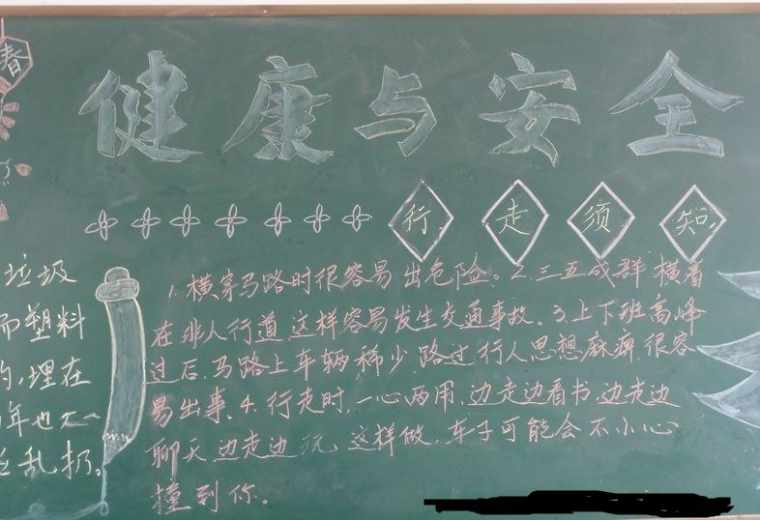 春
健康与安全
行走须知
垃圾
而塑料
的,埋在
年也不
乱扔。
1.横穿马路时很容易出危险。2.三五成群横着
在非人行道,这样容易发生交通事故。3.上下班高峰
过后,马路上车辆稀少,路过行人思想麻痹,很容
易出事。4.行走时,一心两用,边走边看书,边走边
聊天,边走边玩,这样做,车子可能会不小心
撞到你。